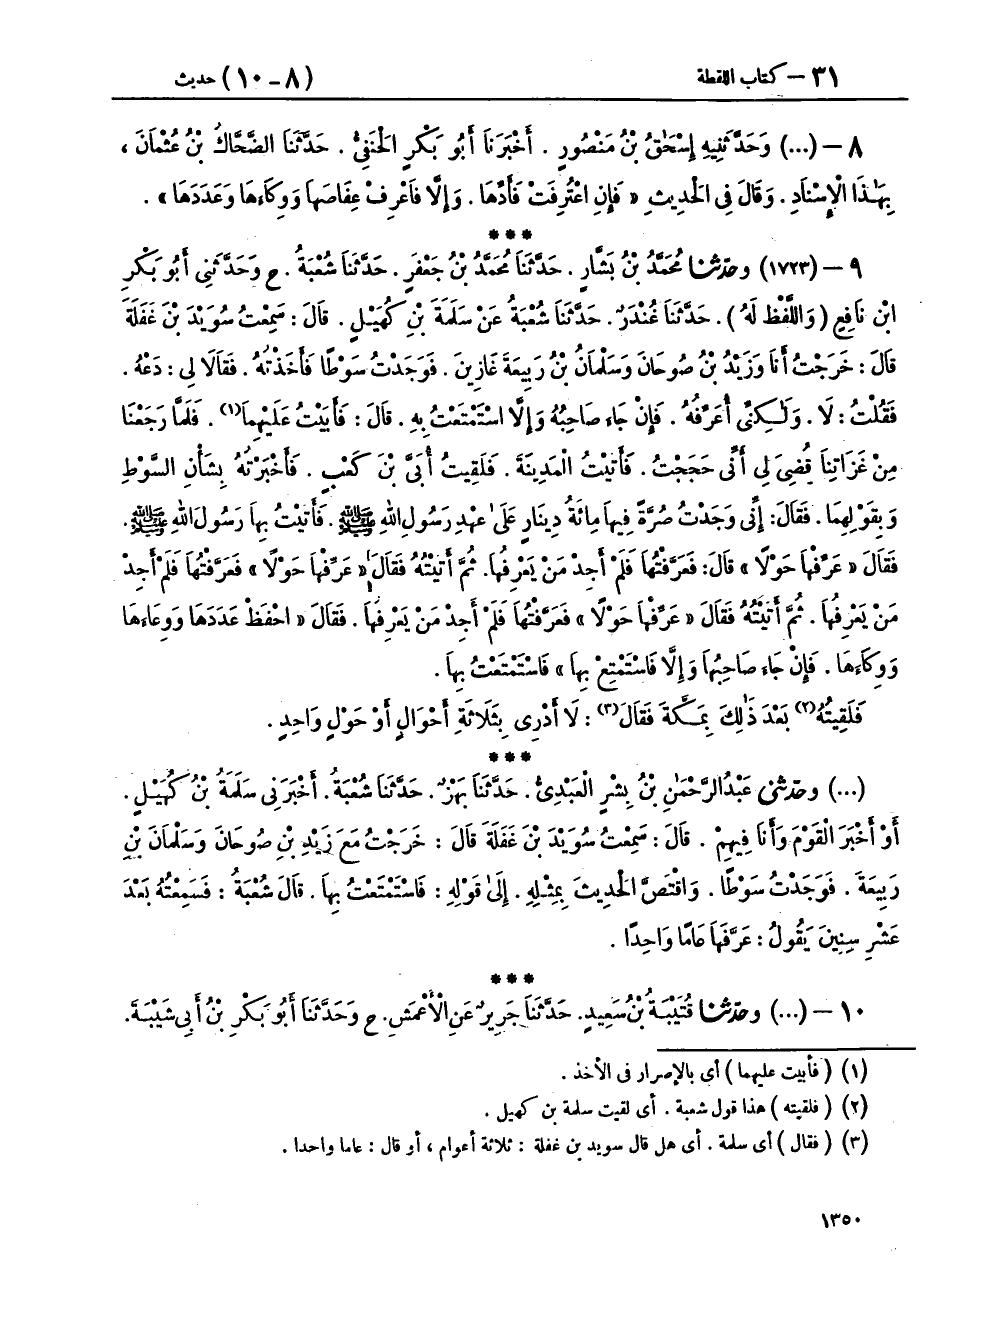 ٣١ – كتاب اللقطة (٨ - ١٠) حديث
٨ – (...) وَحَدَّثَنِيهِ إِسْحَٰقُ بْنُ مَنْصُورٍ . أَخْبَرَنَا أَبُو بَكْرٍ الْحَنَفِيُّ . حَدَّثَنَا الضَّحَّاكُ بْنُ عُثْمَانَ ،
بِهَٰذَا الْإِسْنَادِ . وَقَالَ فِي الْحَدِيثِ « فَإِنِ اعْتُرِفَتْ فَأَدِّهَا . وَإِلَّا فَاعْرِفْ عِفَاصَهَا وَوِكَاءَهَا وَعَدَدَهَا » .
***
٩ – (١٧٢٣) وحدّثنا مُحَمَّدُ بْنُ بَشَّارٍ . حَدَّثَنَا مُحَمَّدُ بْنُ جَعْفَرٍ . حَدَّثَنَا شُعْبَةُ . ح وَحَدَّثَنِي أَبُو بَكْرِ
ابْنُ نَافِعٍ ( وَاللَّفْظُ لَهُ ) . حَدَّثَنَا غُنْدَرٌ . حَدَّثَنَا شُعْبَةُ عَنْ سَلَمَةَ بْنِ كُهَيْلٍ . قَالَ : سَمِعْتُ سُوَيْدَ بْنَ غَفَلَةَ
قَالَ : خَرَجْتُ أَنَا وَزَيْدُ بْنُ صُوحَانَ وَسَلْمَانُ بْنُ رَبِيعَةَ غَازِينَ . فَوَجَدْتُ سَوْطًا فَأَخَذْتُهُ . فَقَالَا لِي : دَعْهُ .
فَقُلْتُ : لَا . وَلَٰكِنِّي أُعَرِّفُهُ . فَإِنْ جَاءَ صَاحِبُهُ وَإِلَّا اسْتَمْتَعْتُ بِهِ . قَالَ : فَأَبَيْتُ عَلَيْهِمَا(١) . فَلَمَّا رَجَعْنَا
مِنْ غَزَاتِنَا قُضِيَ لِي أَنِّي حَجَجْتُ . فَأَتَيْتُ الْمَدِينَةَ . فَلَقِيتُ أُبَيَّ بْنَ كَعْبٍ . فَأَخْبَرْتُهُ بِشَأْنِ السَّوْطِ
وَبِقَوْلِهِمَا . فَقَالَ : إِنِّي وَجَدْتُ صُرَّةً فِيهَا مِائَةُ دِينَارٍ عَلَىٰ عَهْدِ رَسُولِ اللهِ ﷺ . فَأَتَيْتُ بِهَا رَسُولَ اللهِ ﷺ .
فَقَالَ « عَرِّفْهَا حَوْلًا » قَالَ : فَعَرَّفْتُهَا فَلَمْ أَجِدْ مَنْ يَعْرِفُهَا . ثُمَّ أَتَيْتُهُ فَقَالَ « عَرِّفْهَا حَوْلًا » فَعَرَّفْتُهَا فَلَمْ أَجِدْ
مَنْ يَعْرِفُهَا . ثُمَّ أَتَيْتُهُ فَقَالَ « عَرِّفْهَا حَوْلًا » فَعَرَّفْتُهَا فَلَمْ أَجِدْ مَنْ يَعْرِفُهَا . فَقَالَ « احْفَظْ عَدَدَهَا وَوِعَاءَهَا
وَوِكَاءَهَا . فَإِنْ جَاءَ صَاحِبُهَا وَإِلَّا فَاسْتَمْتِعْ بِهَا » فَاسْتَمْتَعْتُ بِهَا .
فَلَقِيتُهُ(٢) بَعْدَ ذَٰلِكَ بِمَكَّةَ فَقَالَ(٣) : لَا أَدْرِي بِثَلَاثَةِ أَحْوَالٍ أَوْ حَوْلٍ وَاحِدٍ .
***
(...) وحدّثني عَبْدُ الرَّحْمَٰنِ بْنُ بِشْرٍ الْعَبْدِيُّ . حَدَّثَنَا بَهْزٌ . حَدَّثَنَا شُعْبَةُ . أَخْبَرَنِي سَلَمَةُ بْنُ كُهَيْلٍ .
أَوْ أَخْبَرَ الْقَوْمَ وَأَنَا فِيهِمْ . قَالَ : سَمِعْتُ سُوَيْدَ بْنَ غَفَلَةَ قَالَ : خَرَجْتُ مَعَ زَيْدِ بْنِ صُوحَانَ وَسَلْمَانَ بْنِ
رَبِيعَةَ . فَوَجَدْتُ سَوْطًا . وَاقْتَصَّ الْحَدِيثَ بِمِثْلِهِ . إِلَىٰ قَوْلِهِ : فَاسْتَمْتَعْتُ بِهَا . قَالَ شُعْبَةُ : فَسَمِعْتُهُ بَعْدَ
عَشْرِ سِنِينَ يَقُولُ : عَرَّفَهَا عَامًا وَاحِدًا .
***
١٠ – (...) وحدّثنا قُتَيْبَةُ بْنُ سَعِيدٍ . حَدَّثَنَا جَرِيرٌ عَنِ الْأَعْمَشِ . ح وَحَدَّثَنَا أَبُو بَكْرِ بْنُ أَبِي شَيْبَةَ .
(١) ( فأبيت عليهما ) أى بالإصرار فى الأخذ .
(٢) ( فلقيته ) هذا قول شعبة . أى لقيت سلمة بن كهيل .
(٣) ( فقال ) أى سلمة . أى هل قال سويد بن غفلة : ثلاثة أعوام ، أو قال : عاما واحدا .
١٣٥٠